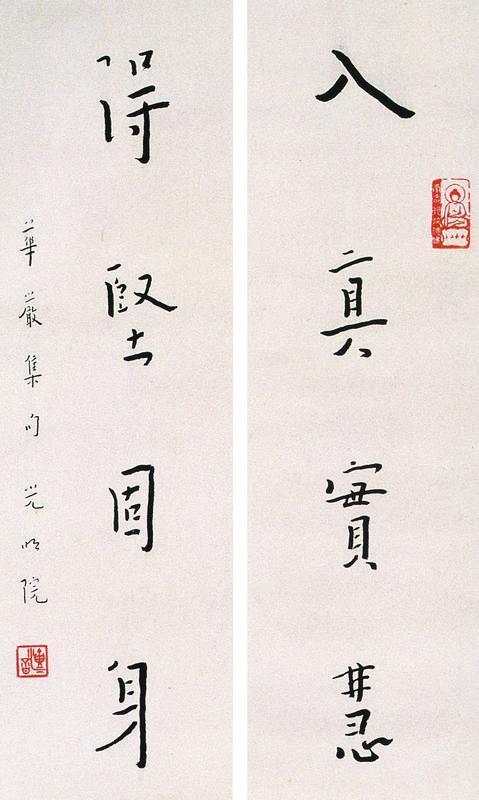 入真實慧
得堅固身
華嚴集句 光明院
演音